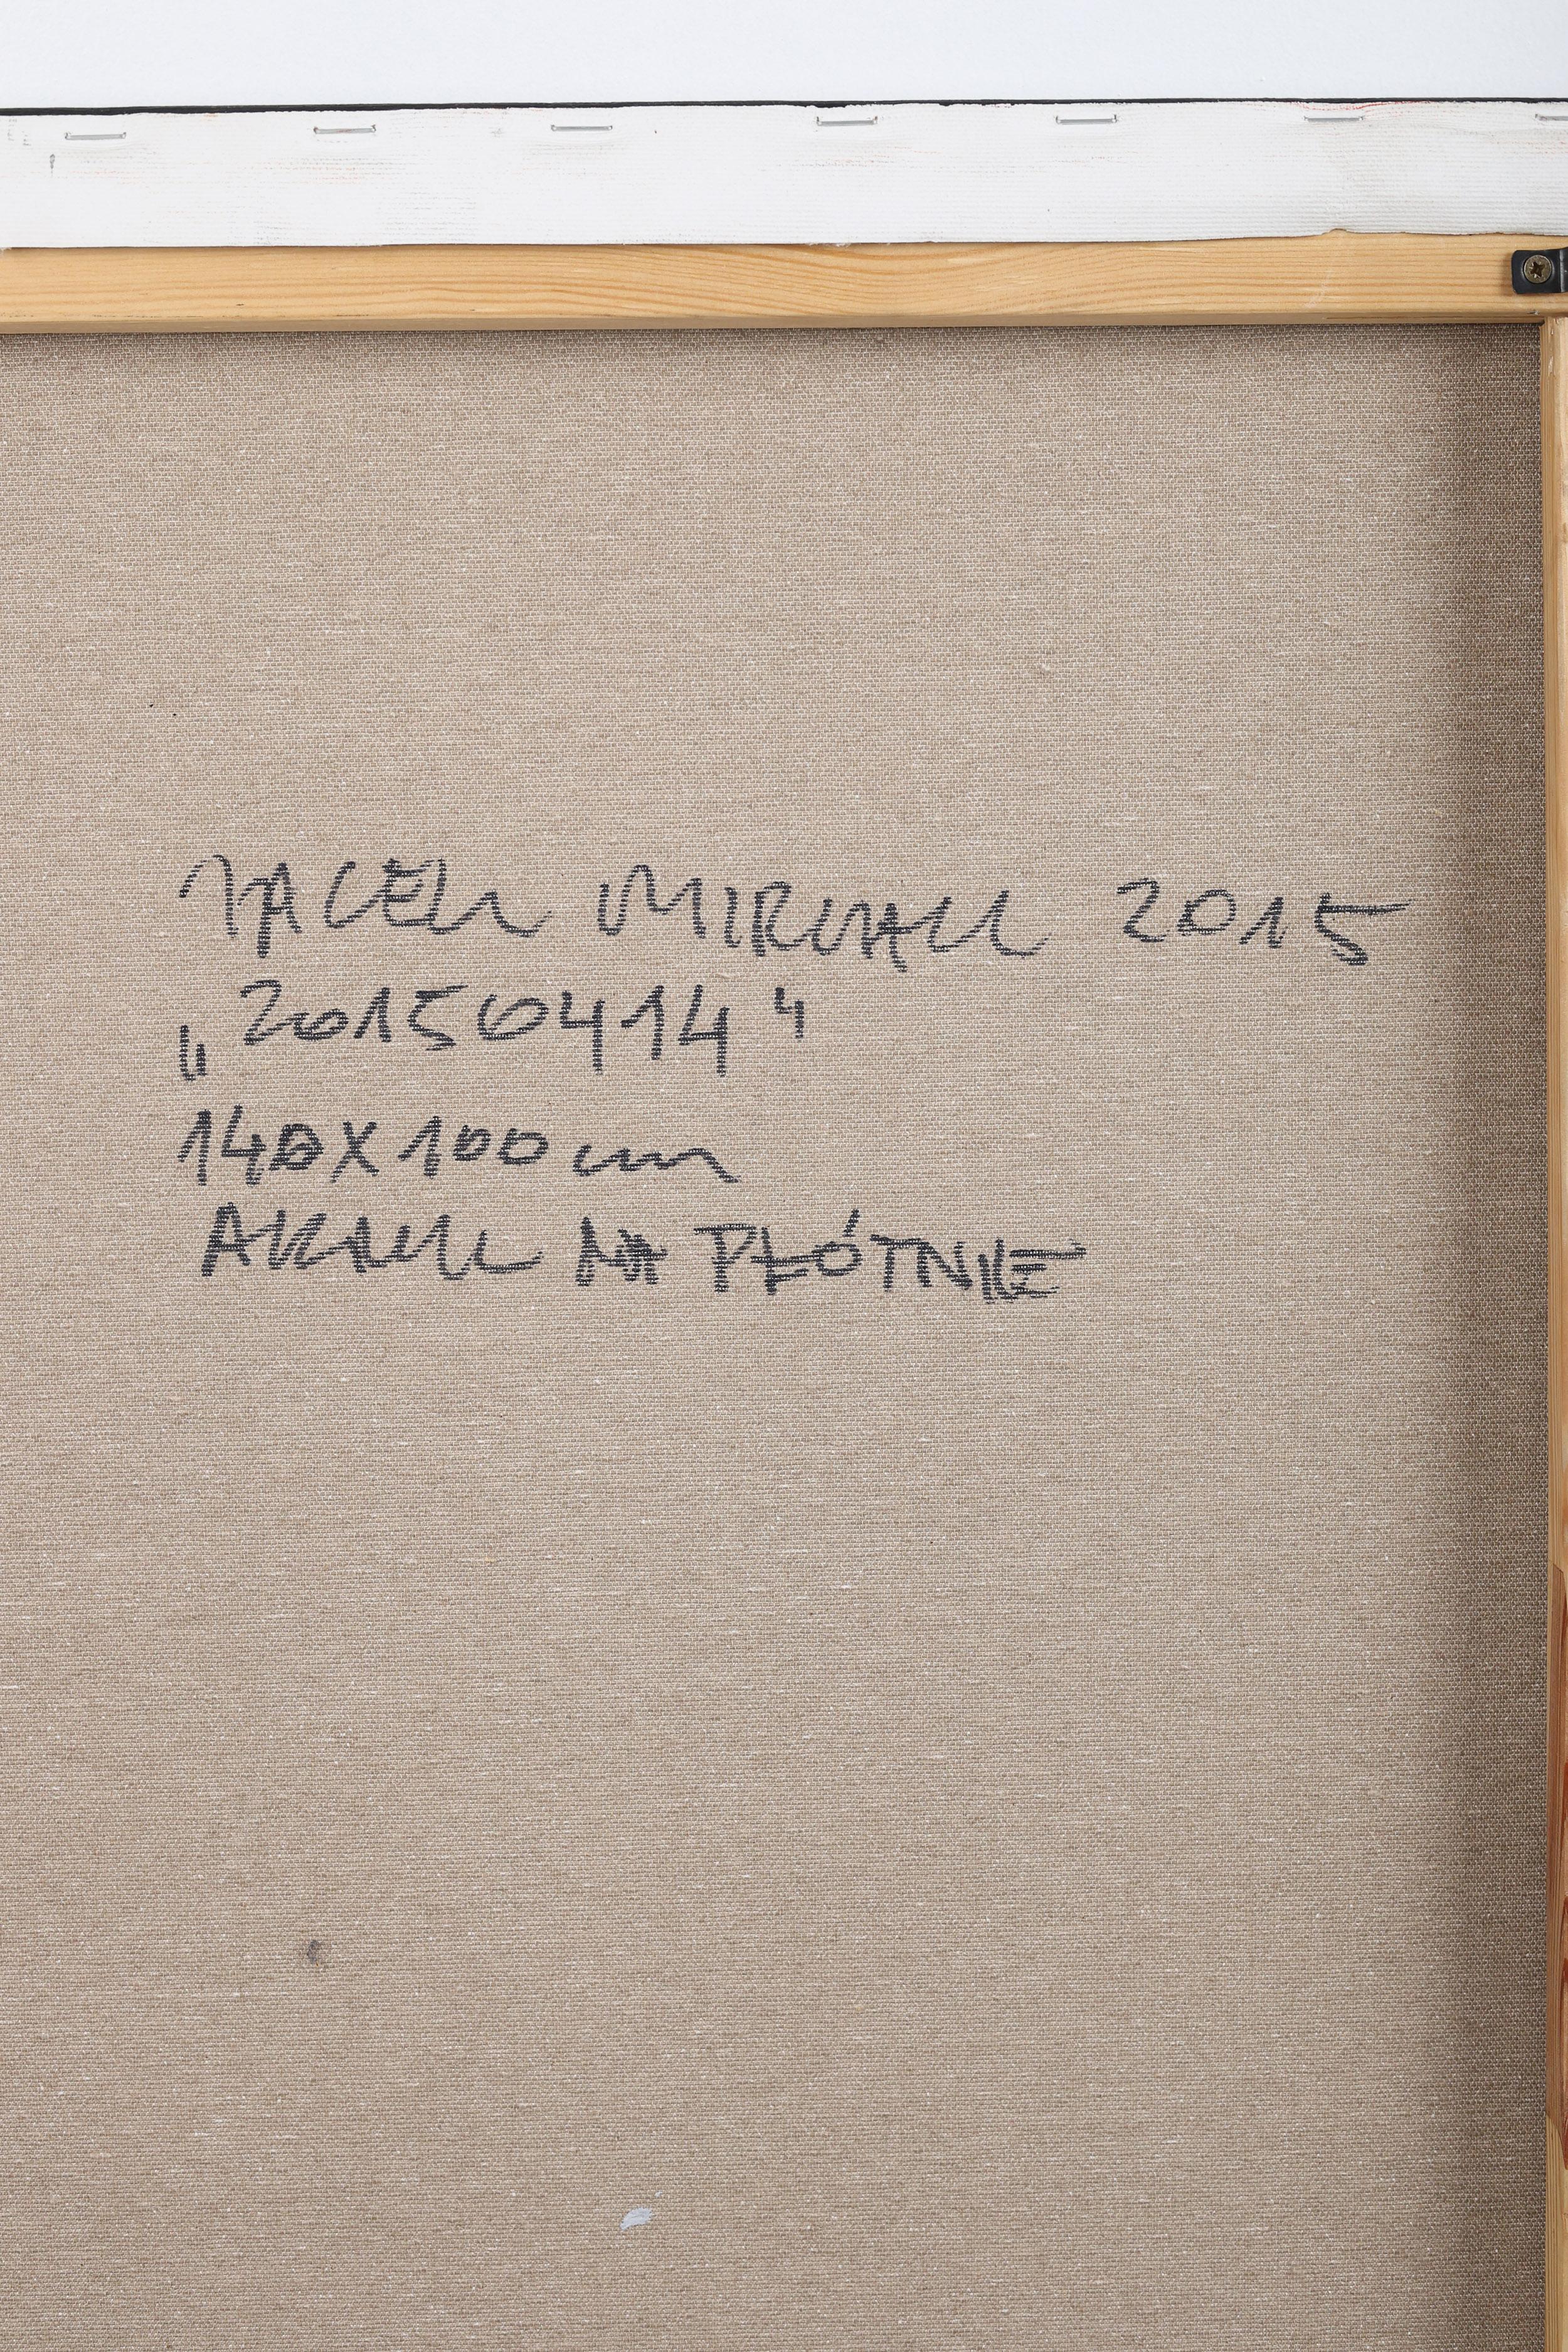 JACEK MIRCZAK 2015
„20150414"
140X100 cm
AKRYL NA PŁÓTNIE